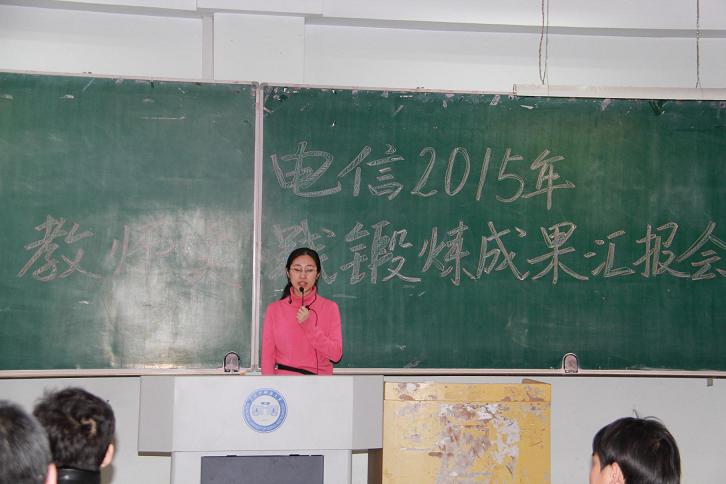 电信2015年
教师实践锻炼成果汇报会